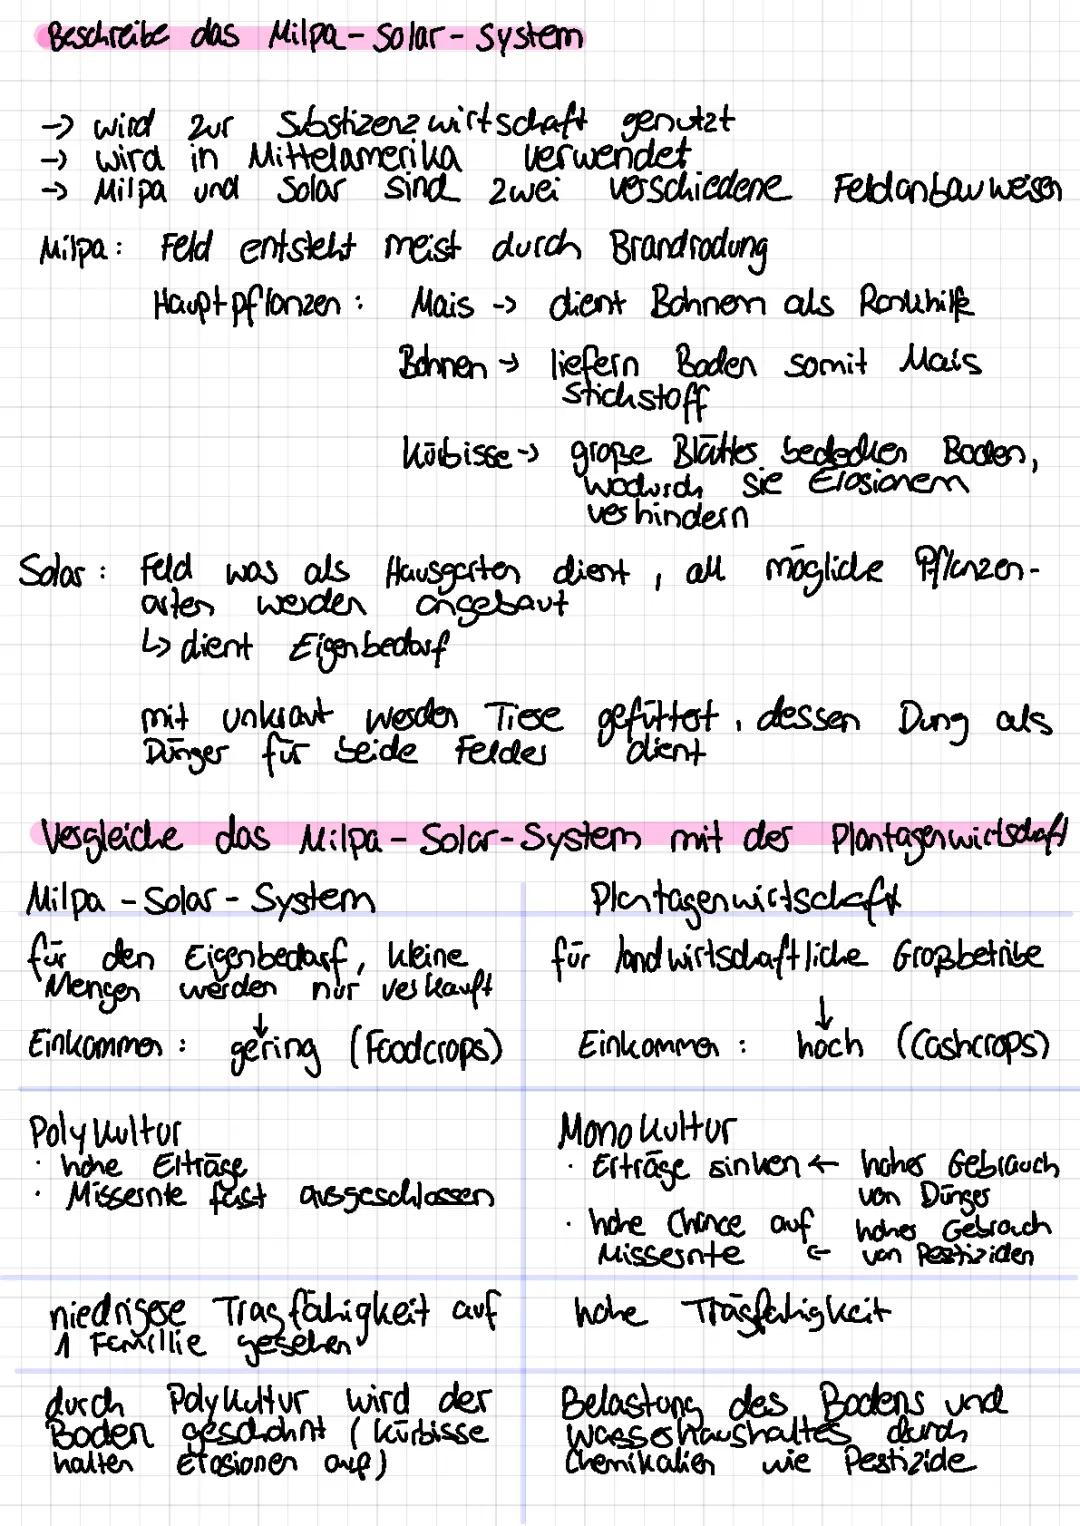 Beschreibe das Milpa-Solar-System
→ wird zur Substizenzwirtschaft genutzt
→ wird in Mittelamerika verwendet
→ Milpa und Solar sind zwei verschiedene Feldanbauweisen
Milpa: Feld entsteht meist durch Brandrodung
Hauptpflanzen: Mais → dient Bohnen als Rankhilfe
Bohnen → liefern Boden somit Mais
Stickstoff
Kürbisse → große Blätter bedecken Boden,
wodurch sie Erosionem
verhindern
Solar: Feld was als Hausgarten dient, all mögliche Pflanzen-
arten werden angebaut
↳ dient Eigenbedarf
mit unkraut werden Tiere gefüttert, dessen Dung als
Dünger für beide Felder dient
Vergleiche das Milpa-Solar-System mit der Plantagenwirtschaft
Milpa-Solar-System Plantagenwirtschaft
für den Eigenbedarf, kleine für landwirtschaftliche Großbetribe
Mengen werden nur verkauft
↓ ↓
Einkommen: gering (Foodcrops) Einkommen: hoch (Cashcrops)
Polykultur Monokultur
· hohe Erträge · Erträge sinken ← hoher Gebrauch
· Missernte fast ausgeschlossen von Dünger
· hohe Chance auf hoher Gebrauch
Missernte ← von Pestiziden
niedrigere Tragfähigkeit auf hohe Tragfähigkeit
1 Famillie gesehen
durch Polykultur wird der Belastung des Bodens und
Boden geschohnt (Kürbisse Wasserhaushaltes durch
halten Erosionen auf) Chemikalien wie Pestizide